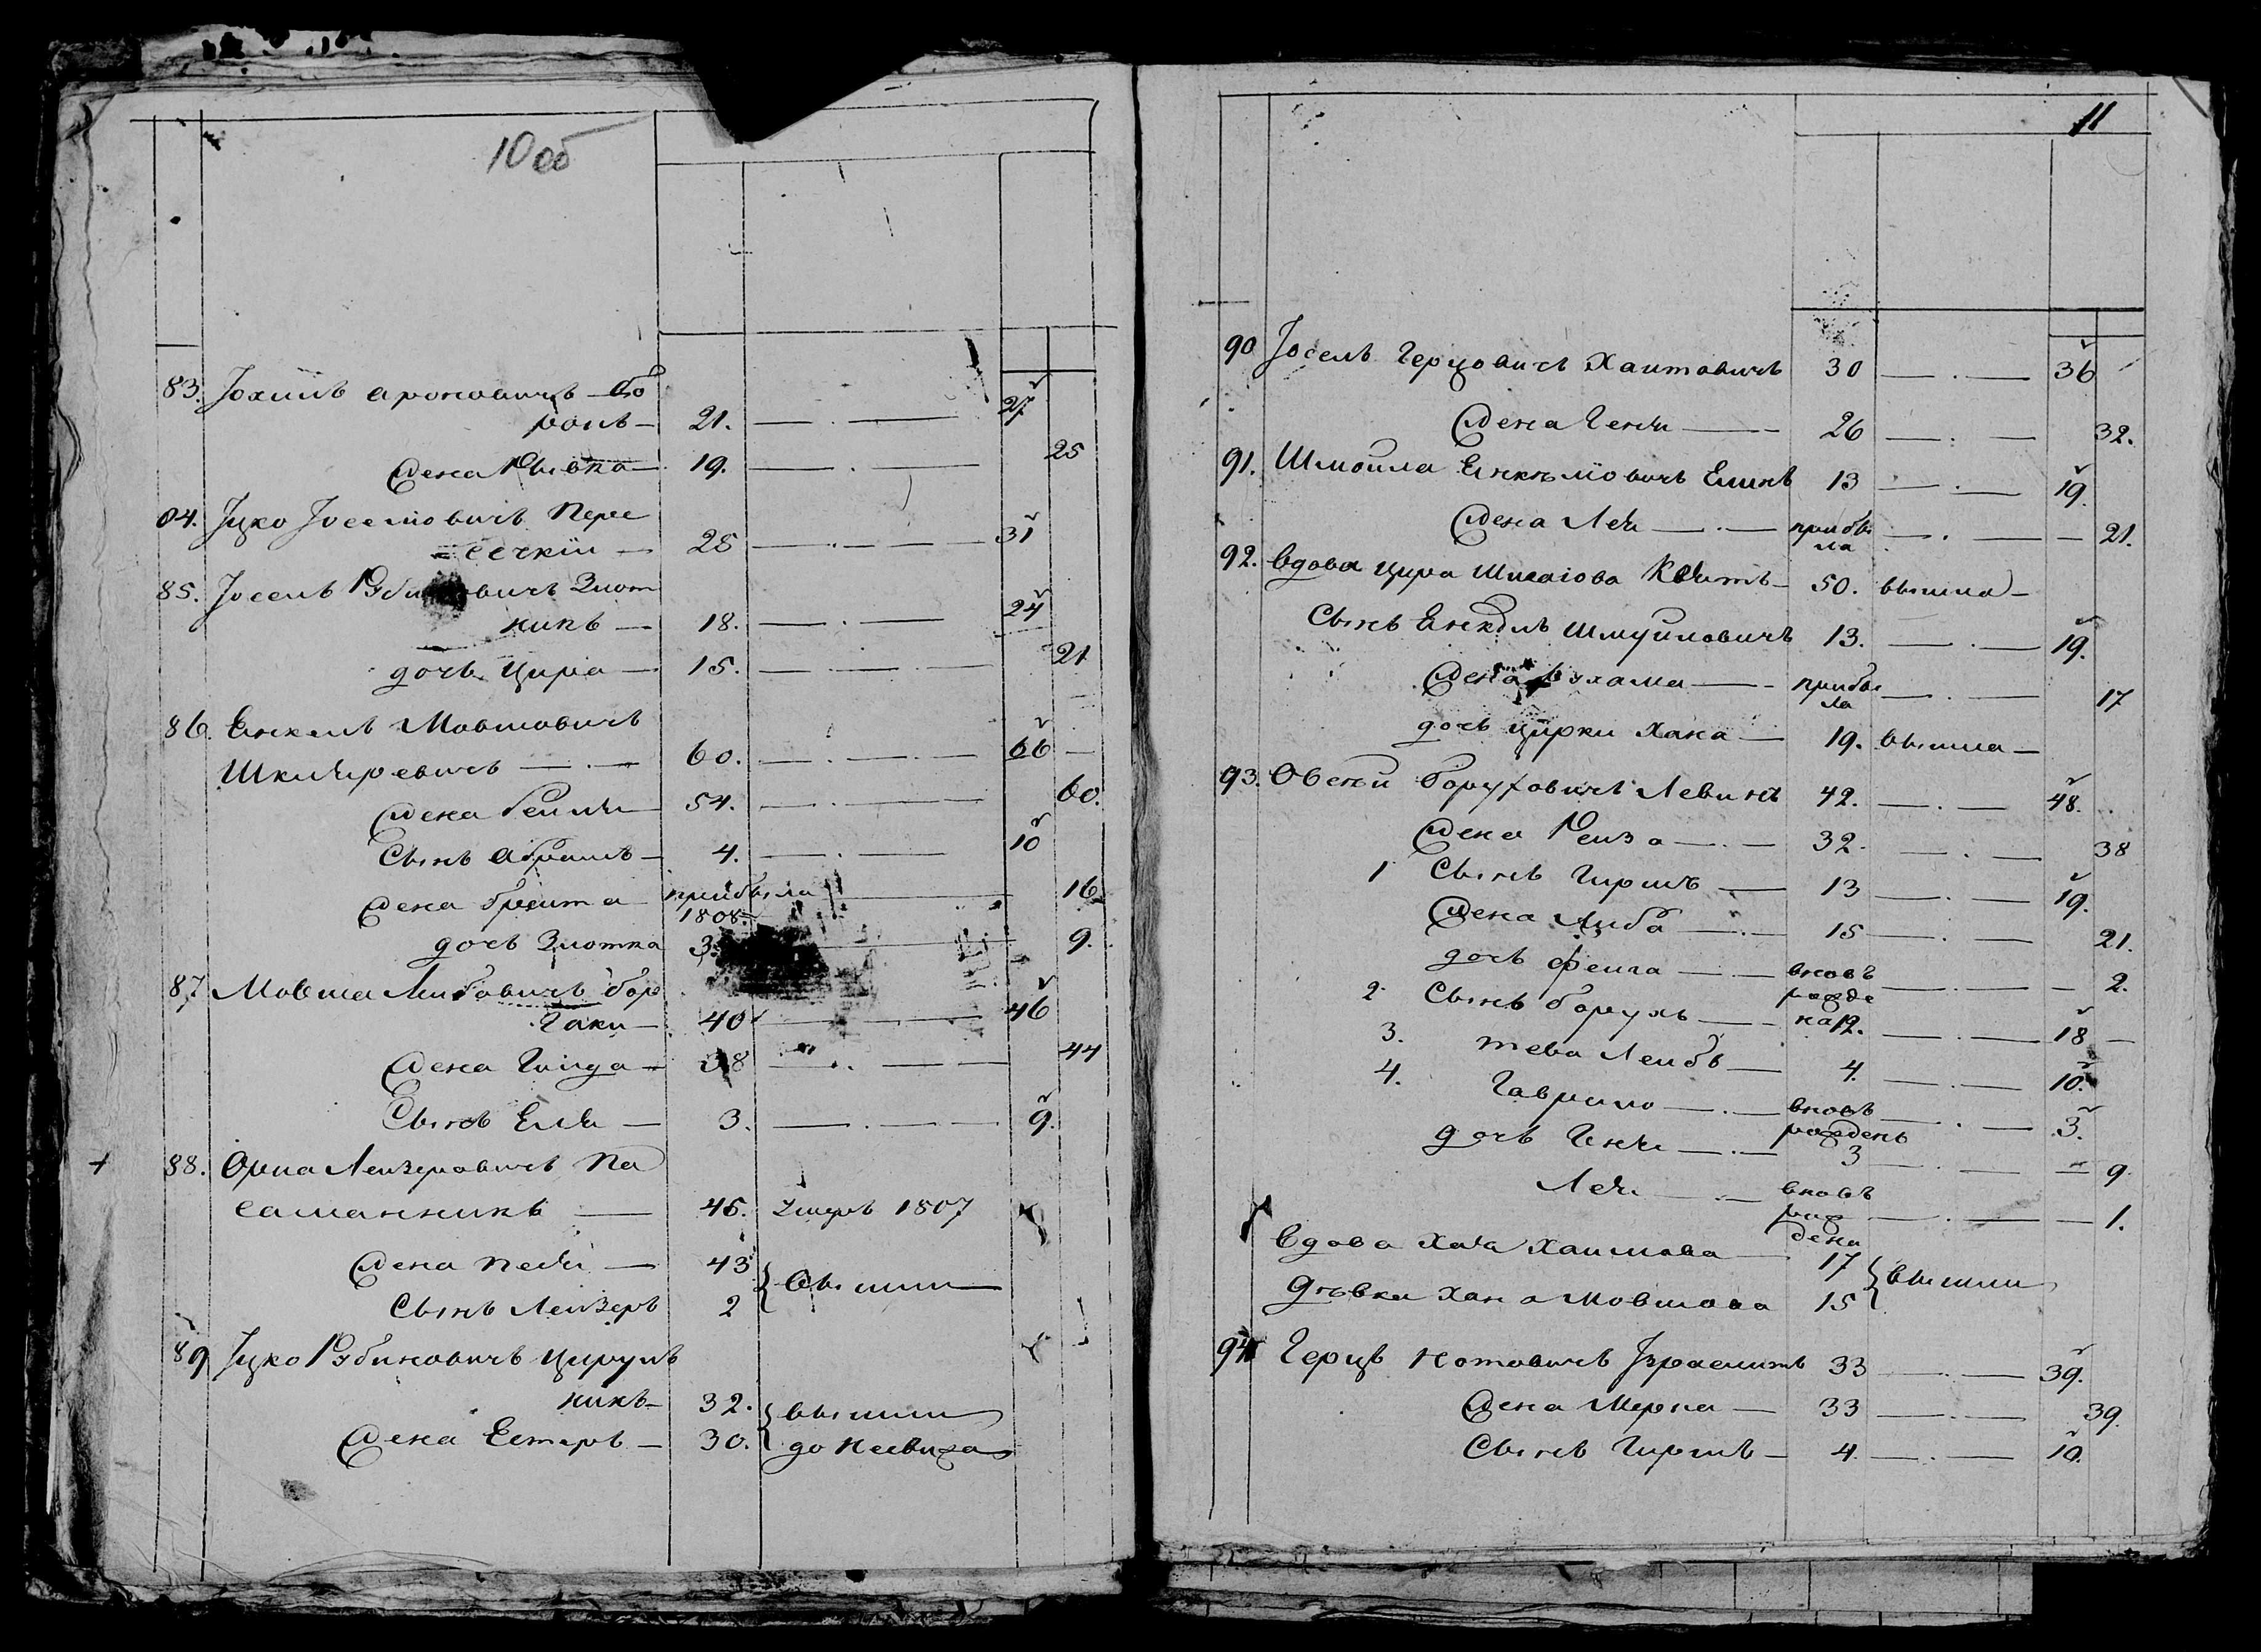 10 об
83. Іохимъ Ароновичъ Бо
ронъ — 21. 27
жена Рывка — 19. 25
84. Іцко Іоселiовичъ Пере
сечкiи — 25 31
85. Іосель Рубиновичъ Злот
никъ — 18. 24
дочь Цира — 15. 21
86. Енкель Мовшовичъ
60. 66
жена Беиля 54. 60.
Сынъ Абрамъ — 4. 10
жена Бреита — прибыла 16
1808
дочь Злотка 3. 9.
87 Мовша Либовичъ
40 46
жена Гинда — 38 44
Сынъ Еля — 3. 9.
88. Орпа Леизеровичъ Па
саманникъ — 45. Умеръ 1807
жена Песя — 43
вышли
Сынъ Леизеръ 2
89 Іцко Рубиновичъ Цируль
никъ — 32. вышли
жена Естеръ — 30. до Несвижа
11
90 Іосель Герцовичъ Хаитовичъ 30 36
жена Геня — 26 32.
91. Шмоила Енкелiовичъ Елинъ 13 19.
жена Лея — прибы 21.
ла
92. Вдова Цира 50. вышла —
Сынъ Енкель Шмуиловичъ 13. 19.
жена прибы 17
ла
дочь Цирки Хана — 19. вышла —
93. Овсѣй Боруховичъ Левинъ 42. 48.
жена Реиза — 32. 38
1 Сынъ Гиршъ — 13 19.
жена Либа — 15 21.
дочь Феига — вновь 2.
рожде
на
2. Сынъ Борухъ — 12. 18
3. Тева Леибъ — 4. 10.
4. Гаврило — вновь 3.
рожденъ
дочь Геня — 3 9.
Лея — вновь 1.
рож
дена
Вдова Хая Хаимова 17
вышли
дѣвка Хана Мовшова 15
94 Герцъ Нотовичъ Ізраелитъ 33 39.
жена Мерка — 33 39.
Сынъ Гиршъ — 4. 10.